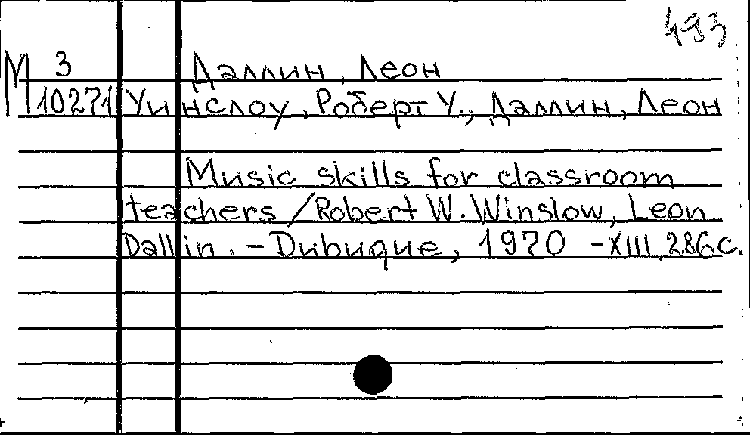 493
М 3 Даллин, Леон
10271 Уинслоу, Роберт У., Даллин, Леон
Music skills for classroom
teachers / Robert W. Winslow, Leon
Dallin. – Dubuque, 1970 – XIII, 286 c.